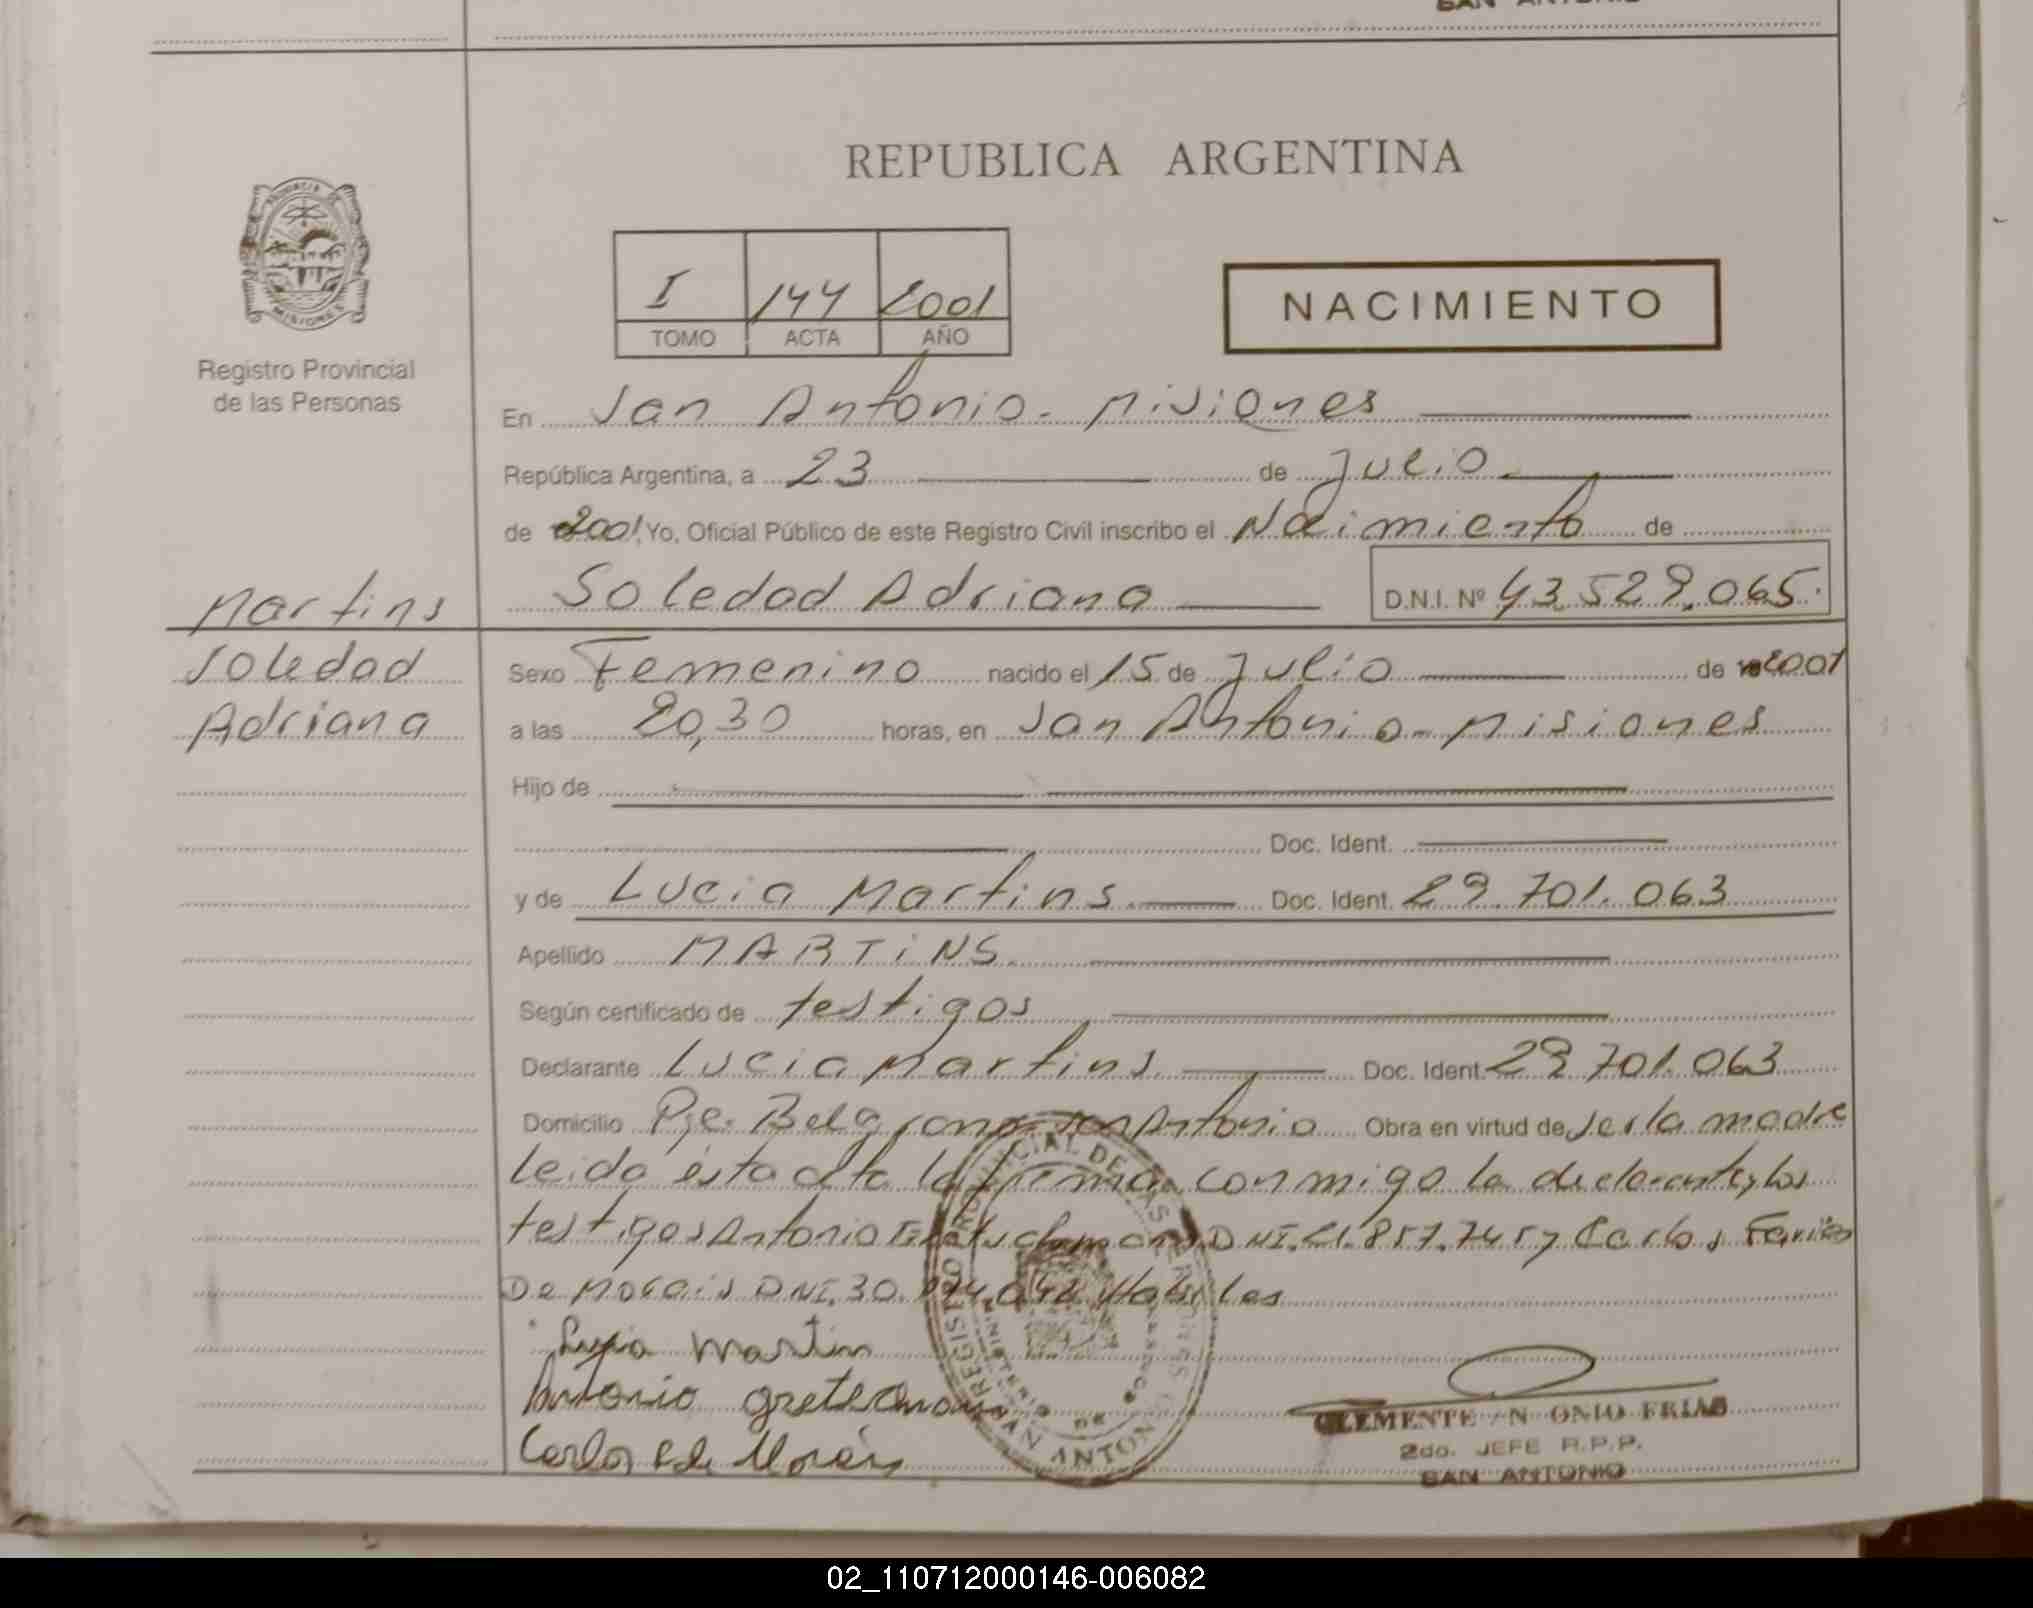 SAN ANTONIO
REPUBLICA ARGENTINA
PROVINCIA DE
MISIONES
I 144 2001
TOMO ACTA AÑO
NACIMIENTO
Registro Provincial
de las Personas
En San Antonio - Misiones
República Argentina, a 23 de Julio
de 2001, Yo, Oficial Público de este Registro Civil inscribo el Nacimiento de
Martins Soledad Adriana D.N.I. Nº 43.529.065.
Soledad Sexo Femenino nacido el 15 de Julio de 2001
Adriana a las 20,30 horas, en San Antonio - Misiones
Hijo de
Doc. Ident.
y de Lucia Martins Doc. Ident. 29.701.063
Apellido MARTiNS
Según certificado de testigos
Declarante Lucia Martins Doc. Ident. 29.701.063
Domicilio Pje. Belgrano San Antonio Obra en virtud de ser la madre
leida esta acta la firma conmigo la declarante y los
testigos Antonio DNI. 21.857.745 y Carlos
De Morais DNI. 30. Habiles
Lucia Martin
Antonio
Carlos
REGISTRO PROVINCIAL DE LAS PERSONAS
MINISTERIO DE
SAN ANTONIO
CLEMENTE ANTONIO FRIAS
2do. JEFE R.P.P.
SAN ANTONIO
02_110712000146-006082